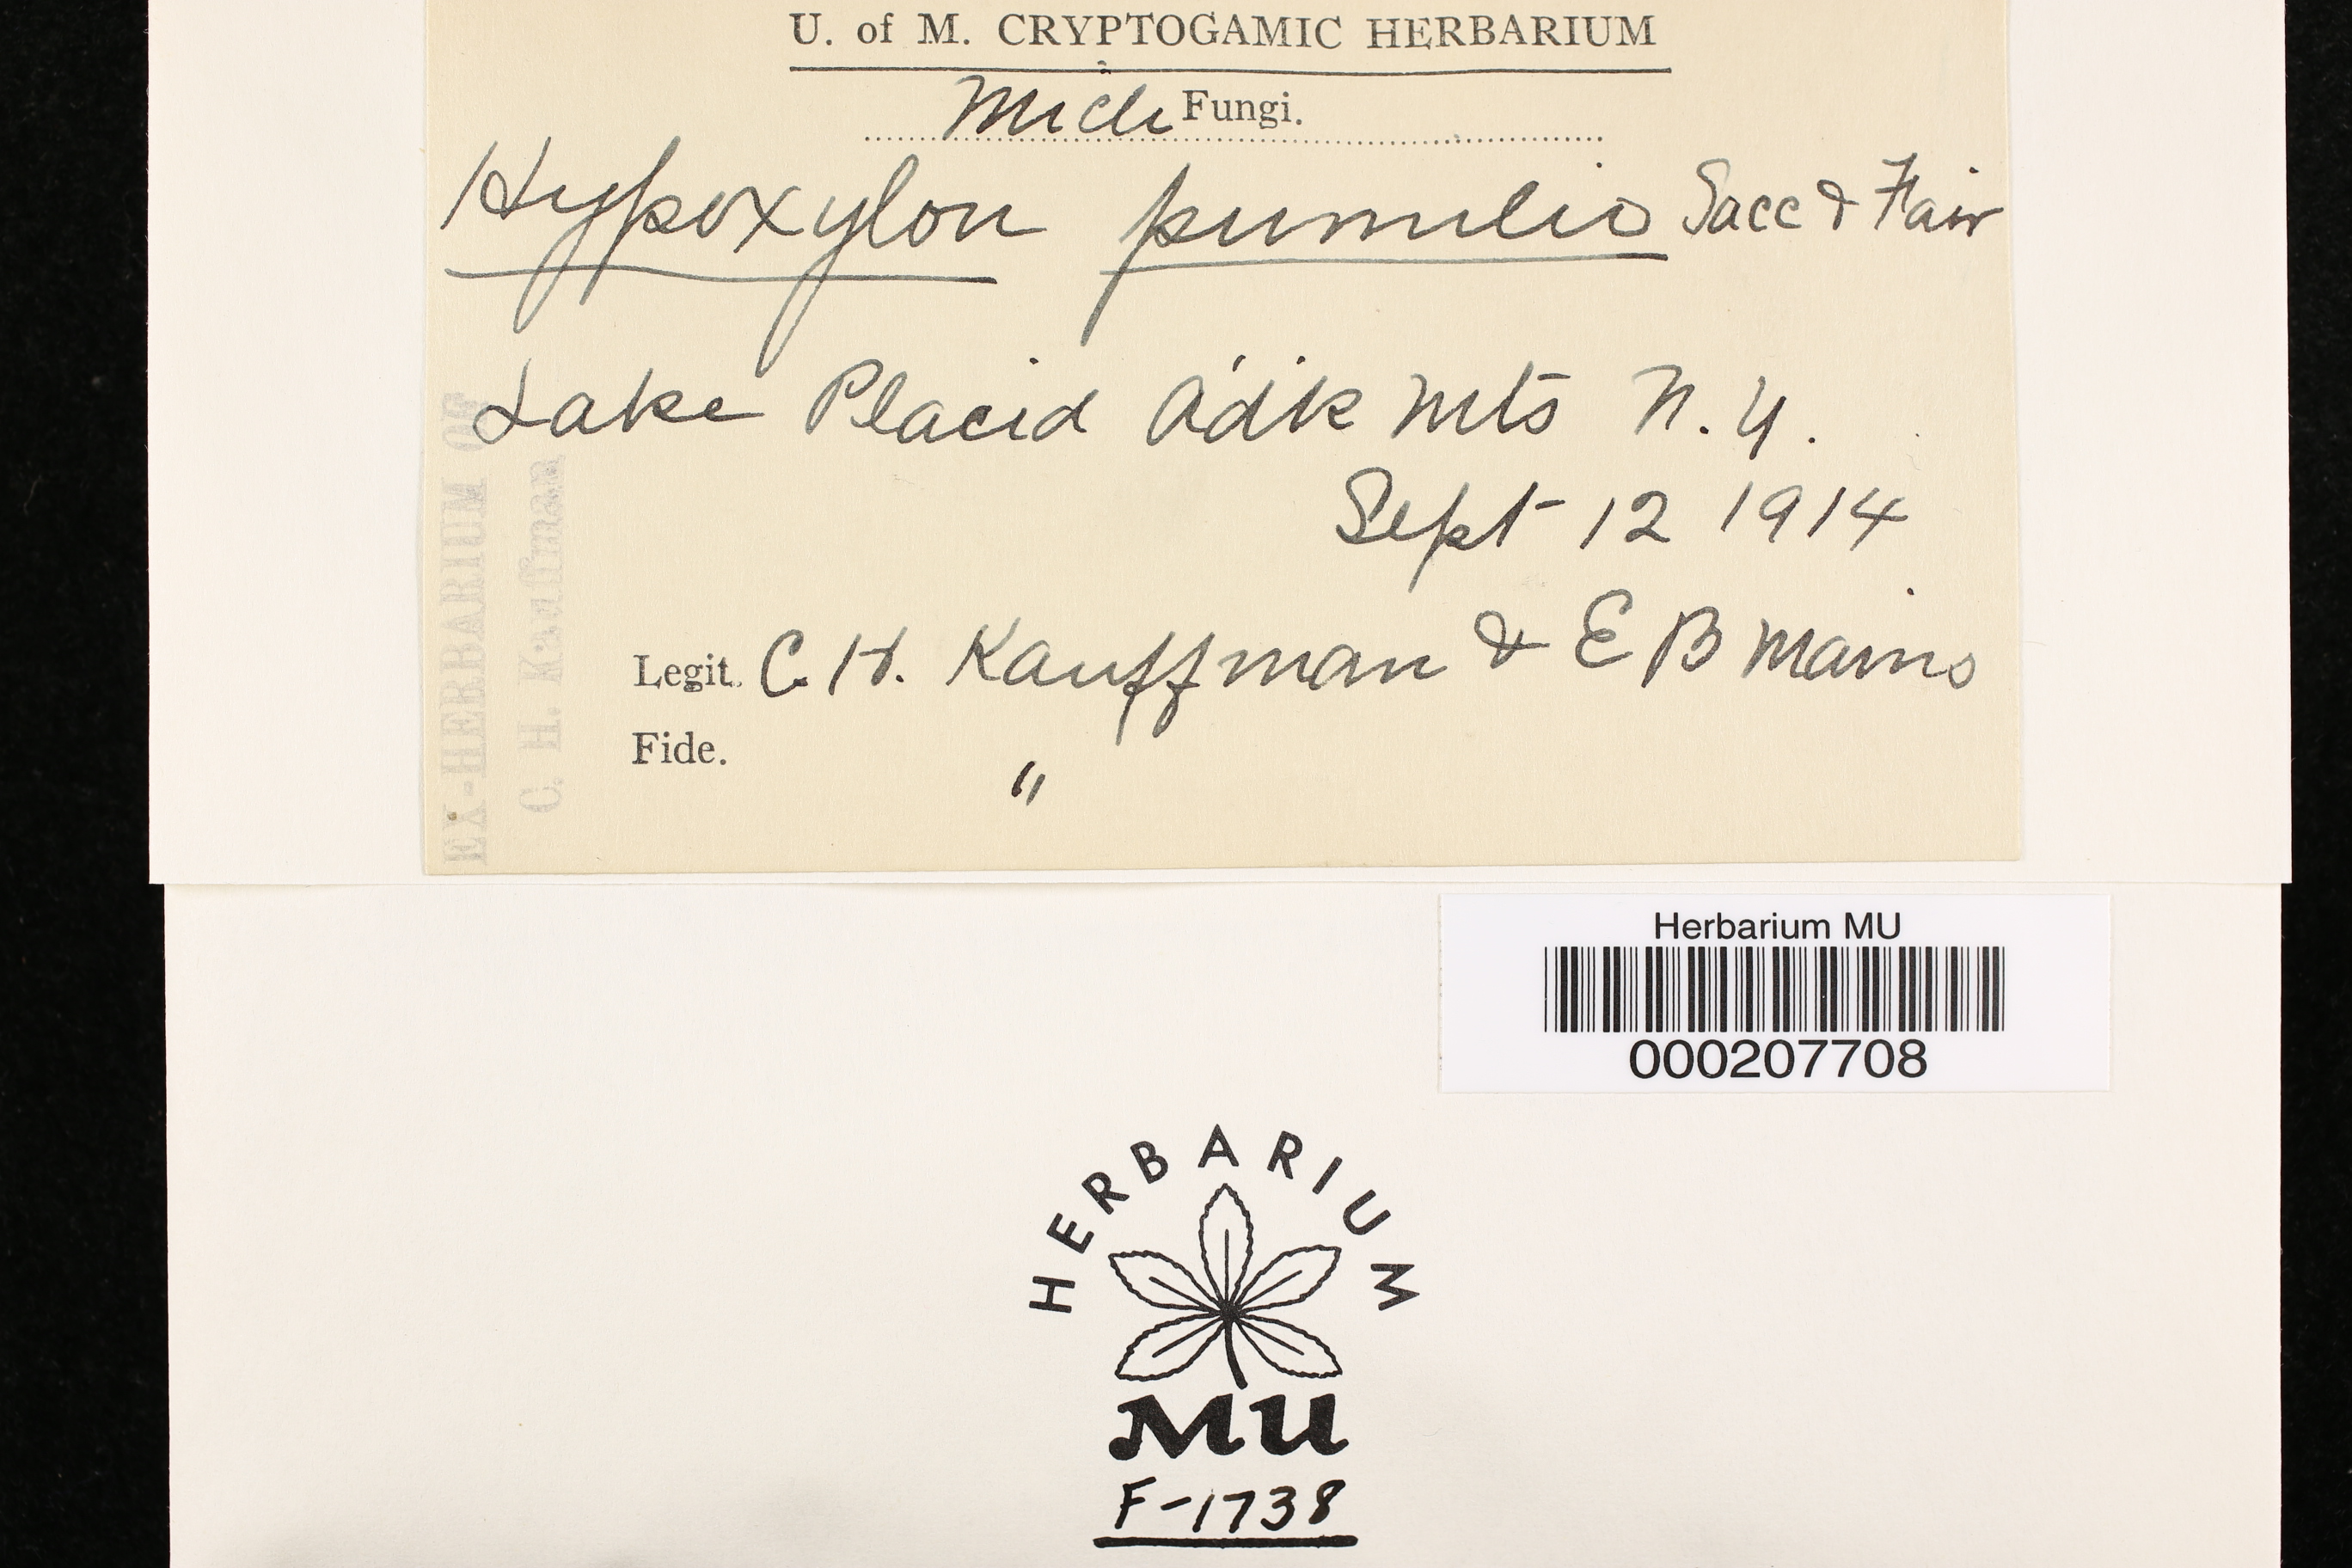 U. of M. CRYPTOGAMIC HERBARIUM
Mich Fungi.
Hypoxylon pumilio Sacc & Fair
Lake Placid Adik Mts N.Y.
Sept 12 1914
Legit. C. H. Kauffman & E B Mains
Fide. "
EX-HERBARIUM OF
C. H. Kauffman
Herbarium MU
000207708
HERBARIUM
MU
F-1738